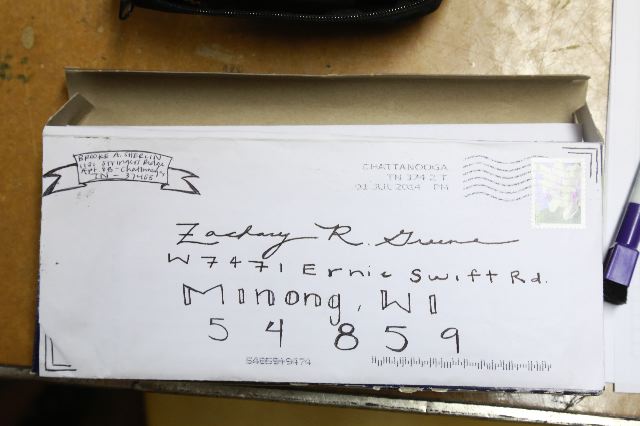 BROOKE A. SHERLIN
1131 Stringers Ridge
Apt 8B - Chattanooga
TN - 37405
CHATTANOOGA
TN 374 2 T
01 JUL 2014 PM
Zachary R. Greene
W7471 Ernie Swift Rd.
Minong, WI
54859
5485949474